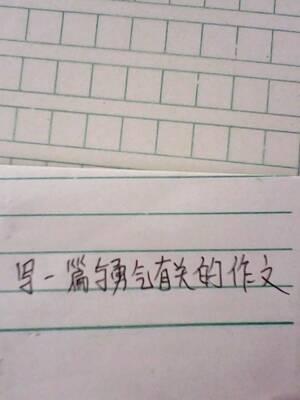 写一篇与勇气有关的作文